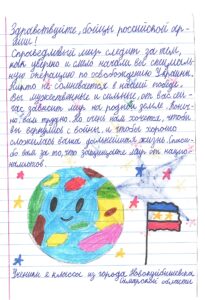 Здравствуйте, бойцы российской ар-
мии!
Справедливый мир следит за тем,
как уверено и смело начали вы специаль-
ную операцию по освобождению Украины.
Никто не сомневается в вашей победе.
Вы мужественные и сильные, от вас сей-
час зависит мир на родной земле. Конеч-
но вам трудно. Но очень нам хочется, чтобы
вы вернулись с войны, и чтобы хорошо
сложилась ваша дальнейшая жизнь. Спаси-
бо вам за то, что защищаете мир от нацио-
налистов.
Ученики 2 класса из города Новокуйбышевска
Самарской области